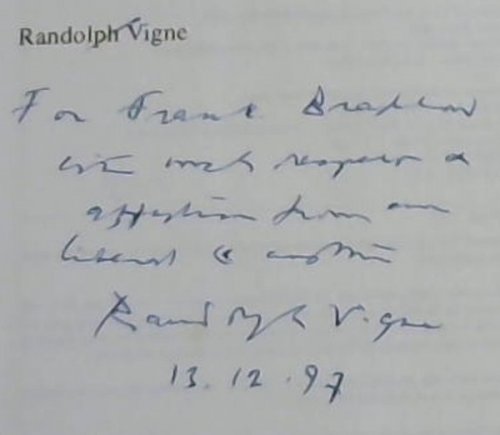 Randolph Vigne
For Frank Bradlow
with much respect &
affection from one
liberal to another
Randolph Vigne
13.12.97